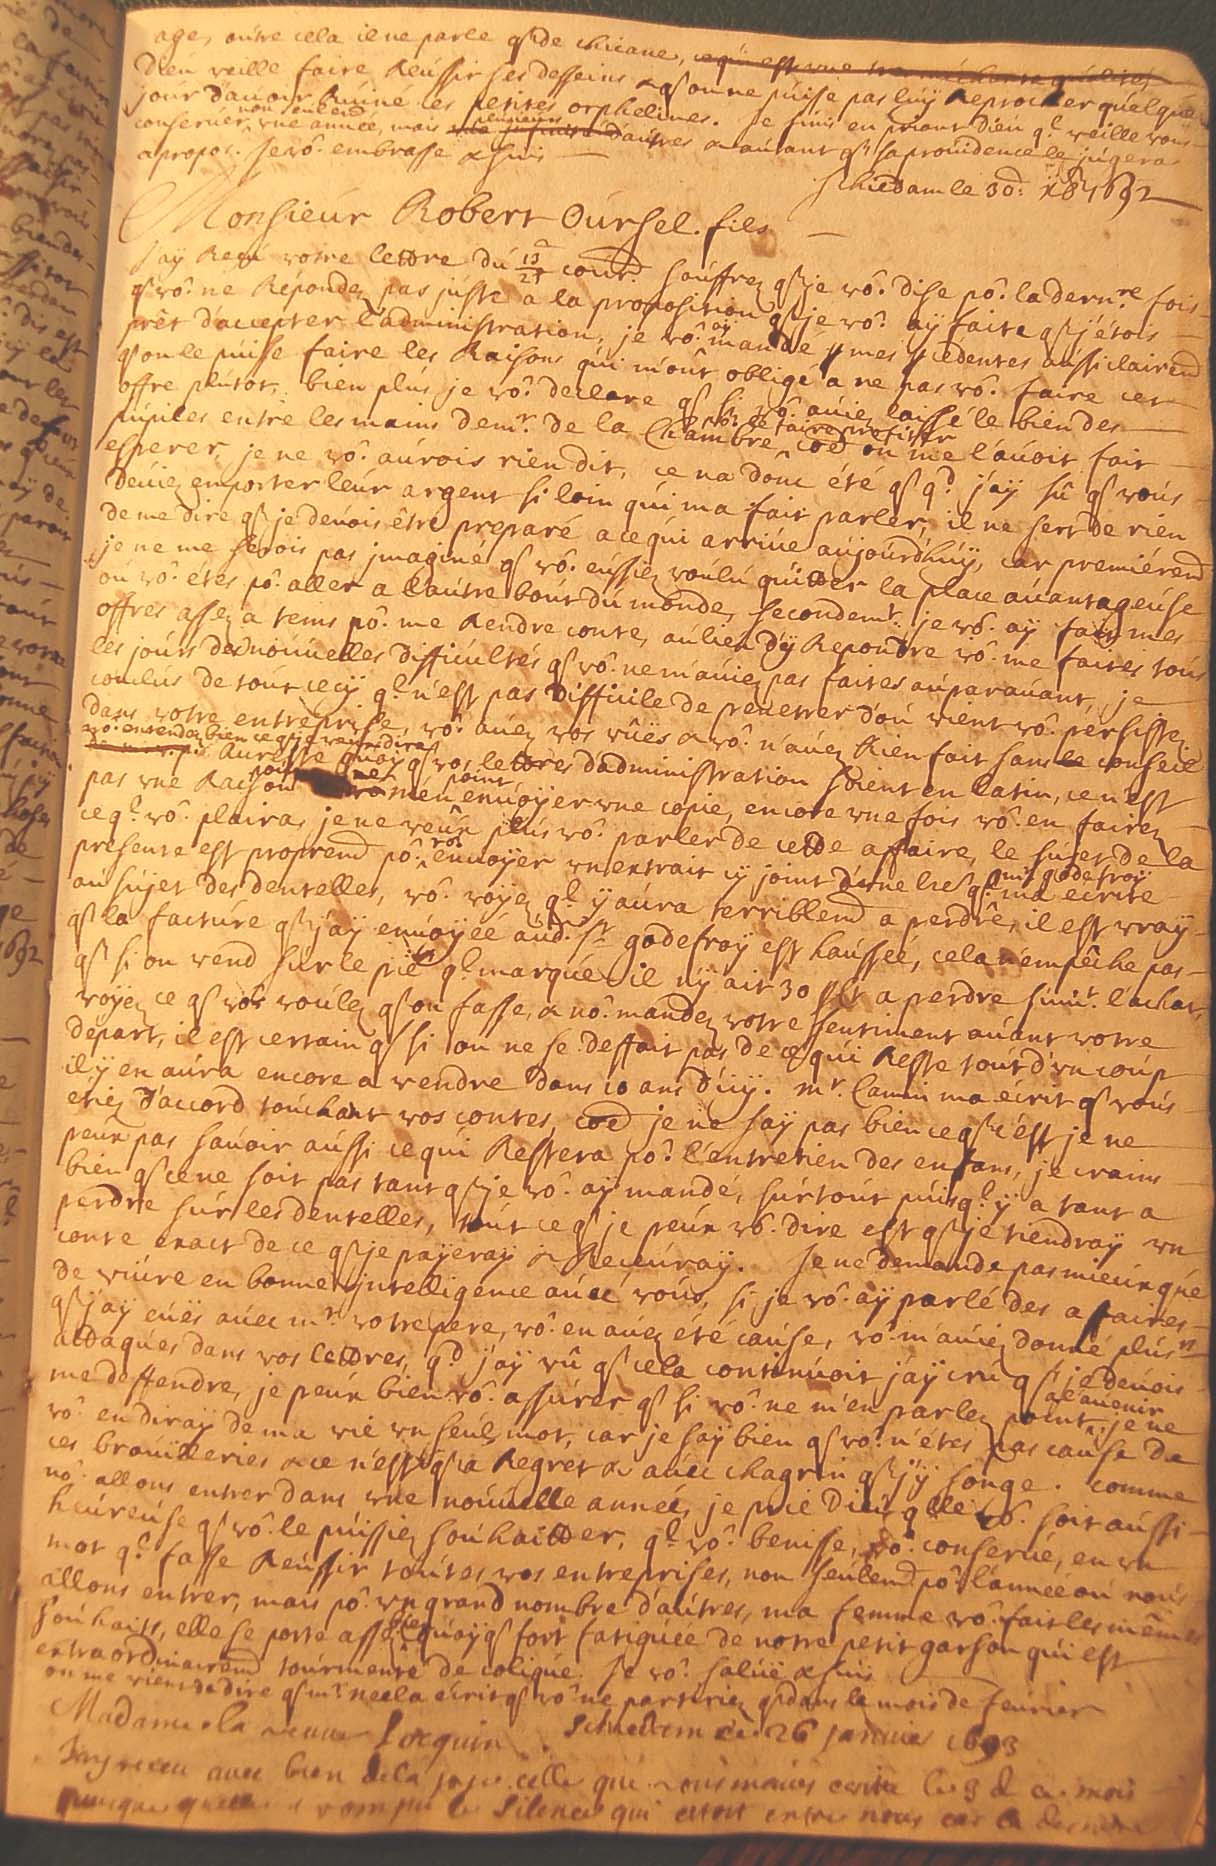 age, outre cela il ne parle qs de chicane, ce qui est une tres méchante qualité,
Dieu veille faire Reussir ses desseins & qs on ne puisse pas luy Reprocher quelque
jour d'avoir Ruiné les petites orphelines. Je finis en priant Dieu ql veille vous
conserver non seulemd une année, mais plusieurs d'autres & autant qs sa providence le jugera
apropos. Je vô. embrasse & suis —
Schiedam le 30d: xbr 1692
Monsieur Robert Oursel. fils —
J'aÿ Reçu votre lettre du 13/23 courd. souffrez qs je vô. dise pô. la dernre fois
qs vô. ne Répondez pas juste a la proposition qs je vô. aÿ faite qs j'étois
prêt d'accepter l'administration, je vô. aÿ mandé p mes pcedentes aussi clairemd
qs on le puisse faire les Raisons qui m'ont obligé a ne pas vô. faire cet
offre plutot, bien plus je vô. declare qs si vô. aviez laissé le bien des
pupiles entre les mains de mr. de la Chambre pô. le faire profiter coe on me l'avoit fait
esperer, je ne vô. aurois rien dit, ce n'a donc été qs qd. j'aÿ sû qs vous
deviez emporter leur argent si loin qui m'a fait parler, il ne sert de rien
de me dire qs je devois être preparé a ce qui arrive aujourd'huÿ, car premiéremd
je ne me serois pas jmaginé qs vô. eussiez voulu quitter la place avantageuse
ou vô. étes pô. aller a l'autre bout du monde, secondemt. je vô. aÿ fait mes
offres assez a tems pô. me Rendre conte, au lieu d'ÿ Repondre vô. me faites tous
les jours des nouvelles difficultés qs vô. ne m'aviez pas faites auparavant, je
conclus de tout cecÿ ql. n'est pas difficile de penetrer d'ou vient vô. persistez
dans votre entreprise, vô. avez vos vûës & vô. n'avez Rien fait sans le conseil
vô. entendez bien ce qs je veux dire. Au reste quoÿ qs vos lettres d'administration soient en latin, ce n'est
pas une Raison pour ne m'en point envoÿer une copie, encore une fois vô. en fairez
ce ql. vô. plaira, je ne veux plus vô. parler de cette affaire, le sujet de la
presente est propremd pô. vô. envoÿer un extrait cÿ joint d'une lre ql. mr godefroÿ m'a écrite
au sujet des dentelles, vô. voÿez ql. ÿ aura terriblemd a perdre, il est vraÿ
qs la facture qs j'aÿ envoÿée aud. sr. godefroÿ est haussée, cela n'empêche pas
qs si on vend sur le pié ql. marque il n'ÿ ait 30 pct a perdre suivt. l'achat,
voÿez ce qs vô. voulez qs on fasse, & nô. mandez votre sentiment avant votre
départ, il est certain qs si on ne se deffait pas de ce qui Reste tout d'un coup
il ÿ en aura encore a vendre dans 10 ans d'icÿ. Mr. Camin m'a écrit qs vous
etiez d'accord touchant vos contes, coe je ne saÿ pas bien ce qs c'est je ne
peux pas savoir aussi ce qui Restera pô. l'entretien des enfans, je crains
bien qs ce ne soit pas tant qs je vô. aÿ mandé, surtout puisql. ÿ a tant a
perdre sur les dentelles, tout ce qs je peux vô. dire est qs je tiendraÿ un
conte exact de ce qs je paÿeraÿ & Recevraÿ. Je ne demande pas mieux que
de vivre en bonne jntelligence avec vous, si je vô. aÿ parlé des affaires
qs j'aÿ eües avec mr. votre pere, vô. en avez été cause, vô. m'aviez donné plusrs
attaques dans vos lettres, qd. j'aÿ vû qs cela continuoit j'aÿ cru qs je devois
me deffendre, je peux bien vô. assurer qs si vô. ne m'en parlez point a l'avenir, je ne
vô. en diraÿ de ma vie un seul mot, car je saÿ bien qs vô. n'étes pas cause de
ces brouilleries & ce n'est qs a Regret & avec chagrin qs j'ÿ songe. Comme
nô. allons entrer dans une nouvelle année, je prie Dieu qlle vô. soit aussi
heureuse qs vô. le puissiez souhaitter, ql. vô. benisse, vô. conserve, en un
mot ql. fasse Reussir toutes vos entreprises, non seulemd pô. l'année ou nous
allons entrer, mais pô. un grand nombre d'autres, ma femme vô. fait les mêmes
souhaits, elle se porte assez bien quoÿ qs fort fatiguée de notre petit garson qui est
extraordinairemd tourmenté de colique. Je vô. salüe & suis
on me vient de dire qs mr. Neel a écrit qs vô. ne partiriez qs dans le mois de fevrier
Madame la veuve Locquin. Schiedam le 26 Janvier 1693
Jay receu avec bien de la joye celle que vous mavez ecrite le 3 d ce mois
puisque rompu le silence qui etoit entre nous car